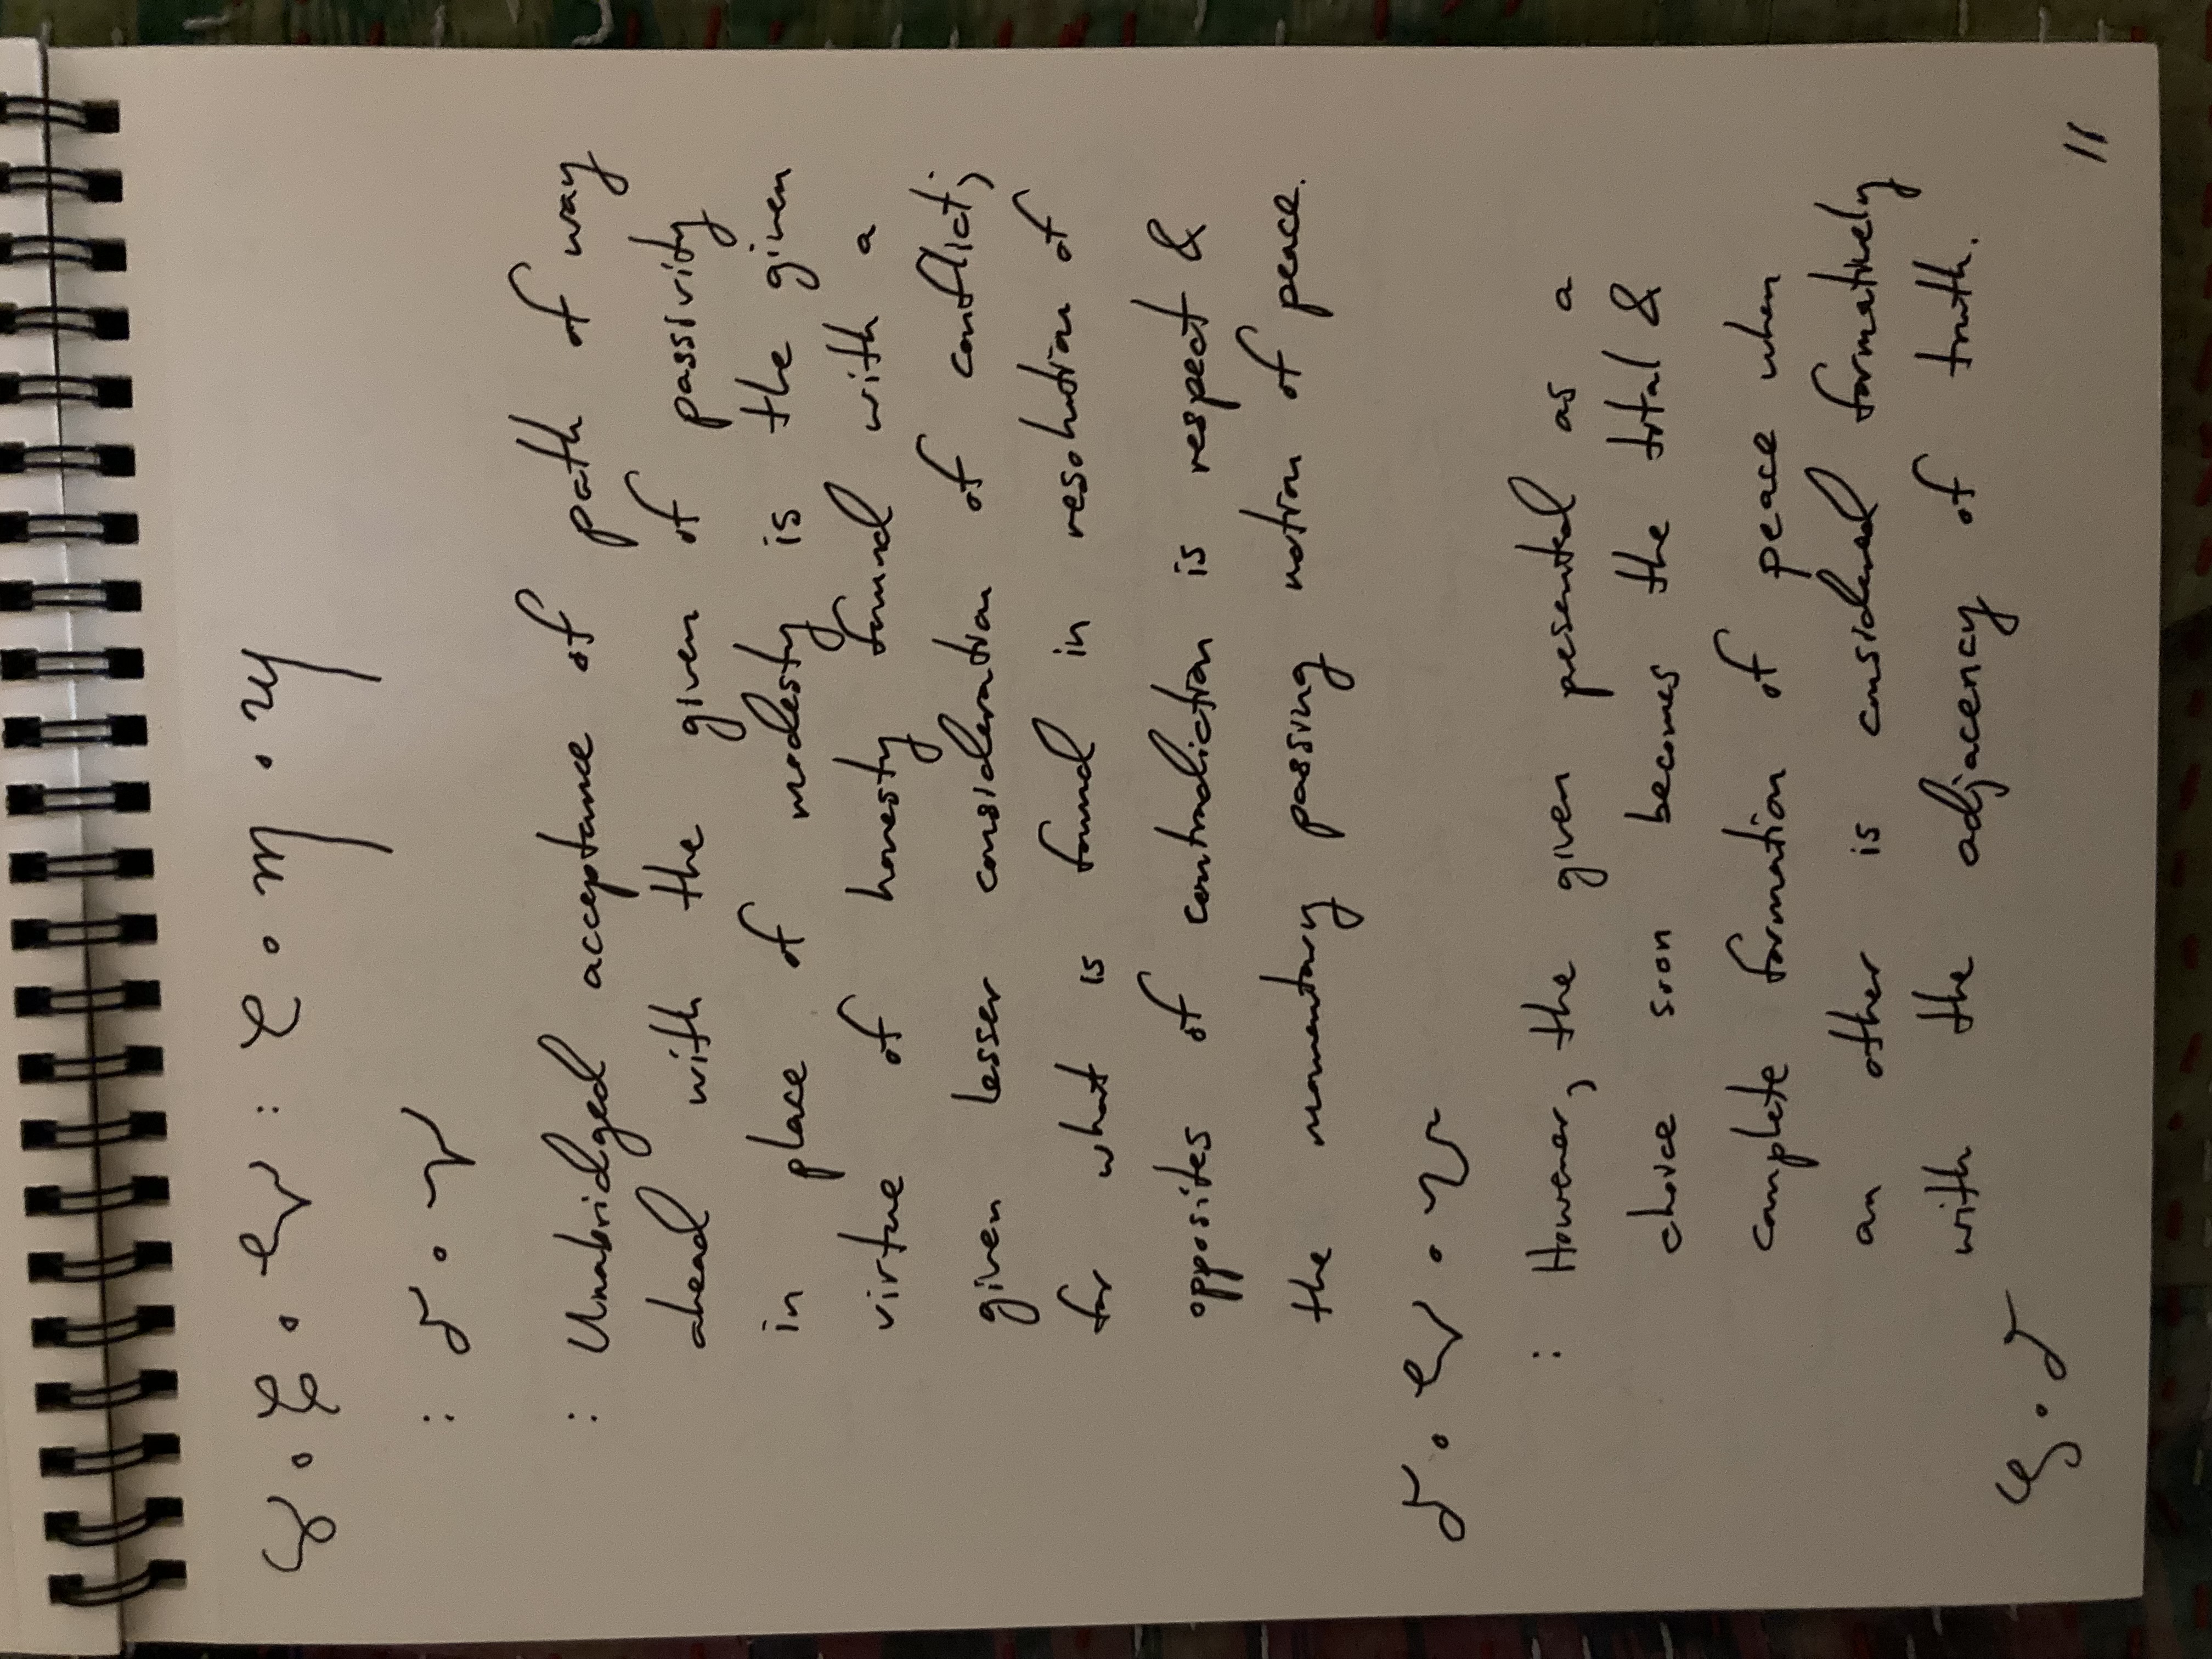 : Unabridged acceptance of path of way
ahead with the given of passivity
in place of modesty is the given
virtue of honesty found with a
given lesser consideration of conflict;
for what is found in resolution of
opposites of contradiction is respect &
the momentary passing notion of peace.
: However, the given presented as a
choice soon becomes the total &
complete formation of peace when
an other is considered formatively
with the adjacency of truth.
11